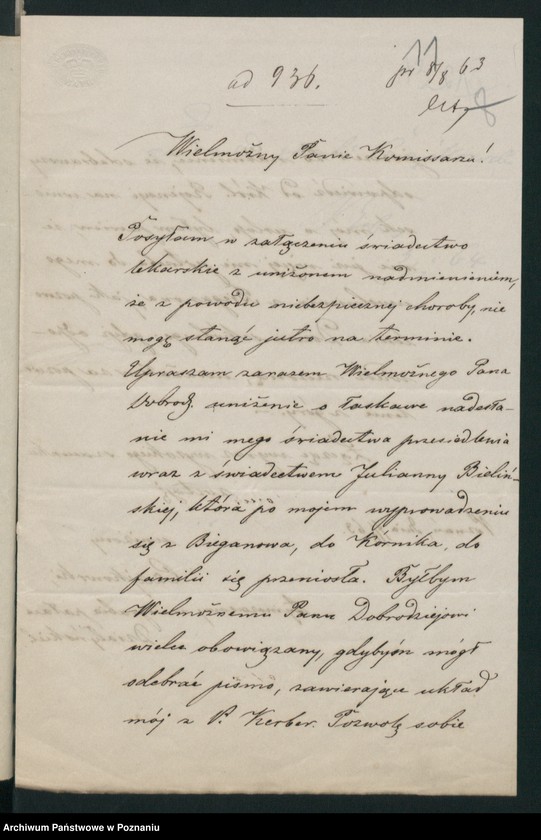 ad 936.
pr 8/8 63
Wielmożny Panie Komissarzu!
Posyłam w załączeniu świadectwo
lekarskie z uniżonem nadmienieniem,
że z powodu niebezpiecznej choroby, nie
mogę stanąć jutro na terminie.
Upraszam zarazem Wielmożnego Pana
Dobrodz. uniżenie o łaskawe nadesła-
nie mi mego świadectwa przesiedlenia
wraz z świadectwem Julianny Bieliń-
skiej, która po mojem wyprowadzeniu
się z Bieganowa, do Kórnika, do
familii się przeniosła. Byłbym
Wielmożnemu Panu Dobrodziejowi
wielce obowiązany, gdybym mógł
odebrać pismo, zawierające układ
mój z P. Kerber. Pozwolę sobie
Archiwum Państwowe w Poznaniu